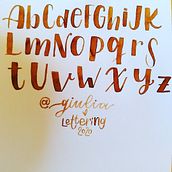 AbcdefGhiJK
LmNopqrs
tuvwxyz
@_giulia
lettering
2020